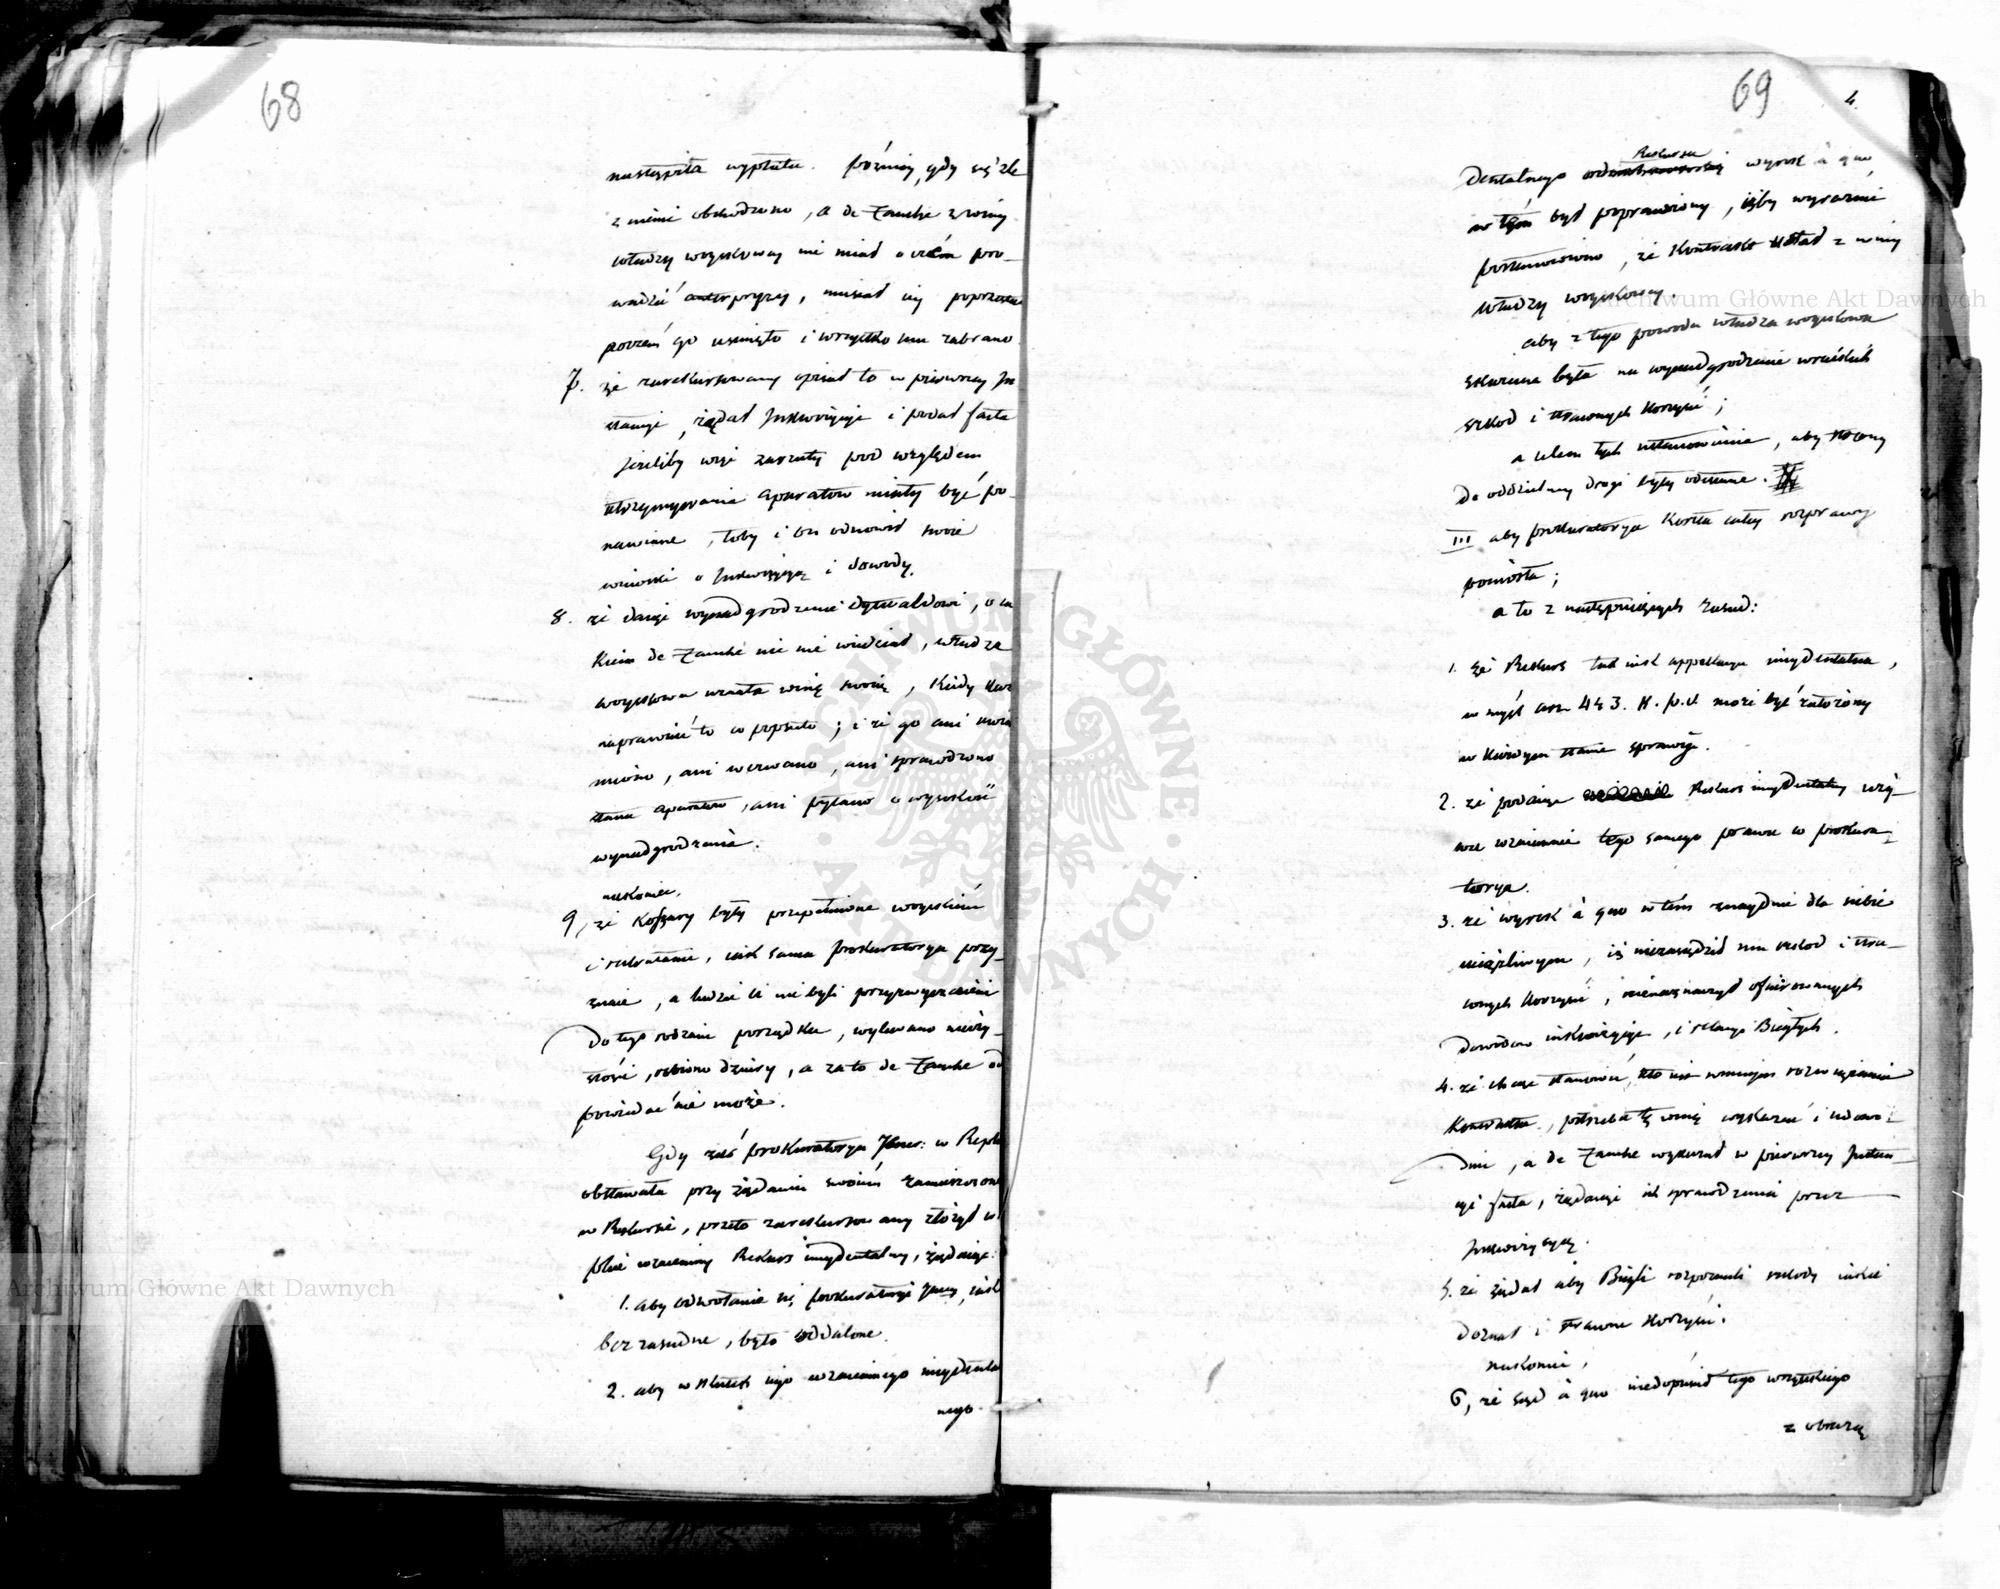 68
nastąpiła wypłata. później gdy się źle
z niemi obchodzono, a de Zamke z winy
władzy woyskowey nie miał o czém pro-
wadzić anterpryzy, musiał iey poprzestać
poczém go usunięto i wszystko mu zabrano
7. że zarekursowany opisał to w pierwszey In
stancyi, żądał Inkwizycyi i podał facta
Jeżeliby więc zarzuty pod względem
utrzymywania aparatow miały być po-
nawiane, toby i on odnowił swoie
wnioski o Inkwizycyą i dowody.
8. że daiąc wynadgrodzenie Oswaldowi, o ia
kiem de Zamke nic nie wiedział, władza
woyskowa uznała winę swoią, kiedy
naprawiać to co popsuto; i że go ani
, ani wezwano, ani sprawdzono
stanu aparatow, ani pytano o wysokość
wynadgrodzenia.
nakoniec.
9, że Koszary były przepełnione woyskiem
i rekrutami, iak sama prokuratorya przy-
znaie, a ludzie ci nie byli przyzwyczaieni
do tego rodzaiu porządku, wylewano nieczy-
stości, robiono dziury, a za to de Zamke od
powiadać nie może.
Gdy zaś prokuratorya Jener: w Replice
obstawała przy żądaniu swoiém zamieszczoném
w Rekursie, przeto zarekursowany złożył w
polu wzaiemny Rekurs incydentalny, żądaiąc:
1. aby odwołanie się prokuratoryi Jener, iako
bezzasadne, było oddalone.
2. aby w skutek iego wzaiemnego incydental
nego
69
4.
dentalnego Rekursu wyrok à quo
w tém był poprawiony, iżby wyraźnie
postanowiono, że Kontrakt ustał z winy
władzy woyskowey.
aby z tego powodu władza woyskowa
skazana była na wynadgrodzenie wszelkich
szkod i straconych korzyści;
a celem tych ustanowienia, aby strony
do oddzielney drogi były odesłane.
III aby prokuratorya koszta całey rozprawy
poniosła;
a to z następuiących zasad:
1. że Rekurs tak iak appellacya incydentalna,
w myśl art. 443. K. p. c. może być założony
w każdym stanie sprawy.
2. że podaiąc Rekurs incydentalny uży-
wa wzaiemnie tego samego prawa co prokura-
torya.
3. że wyrok à quo w tém znayduie dla siebie
uciążliwym, iż niezasądził mu szkod i stra-
conych korzyści, nienaznaczył ofiarowanych
dowodow inkwizycyi, i relacyi Biegłych.
4. że chcąc stanowić, kto iest winnym rozwiązania
Kontraktu, potrzeba tę winę wykazać i udowo-
dnić, a de Zamke wykazał w pierwszey Instan-
cyi facta, żądaiąc ich sprawdzenia przez
Inkwizycyą.
5. że żądał aby Biegli rozpoznali szkody iakie
doznał i stracone korzyści.
nakoniec,
6, że sąd à quo niedopuścił tego wszystkiego
z obrazą
Archiwum Główne Akt Dawnych
Archiwum Główne Akt Dawnych
ARCHIWUM GŁÓWNE
AKT DAWNYCH